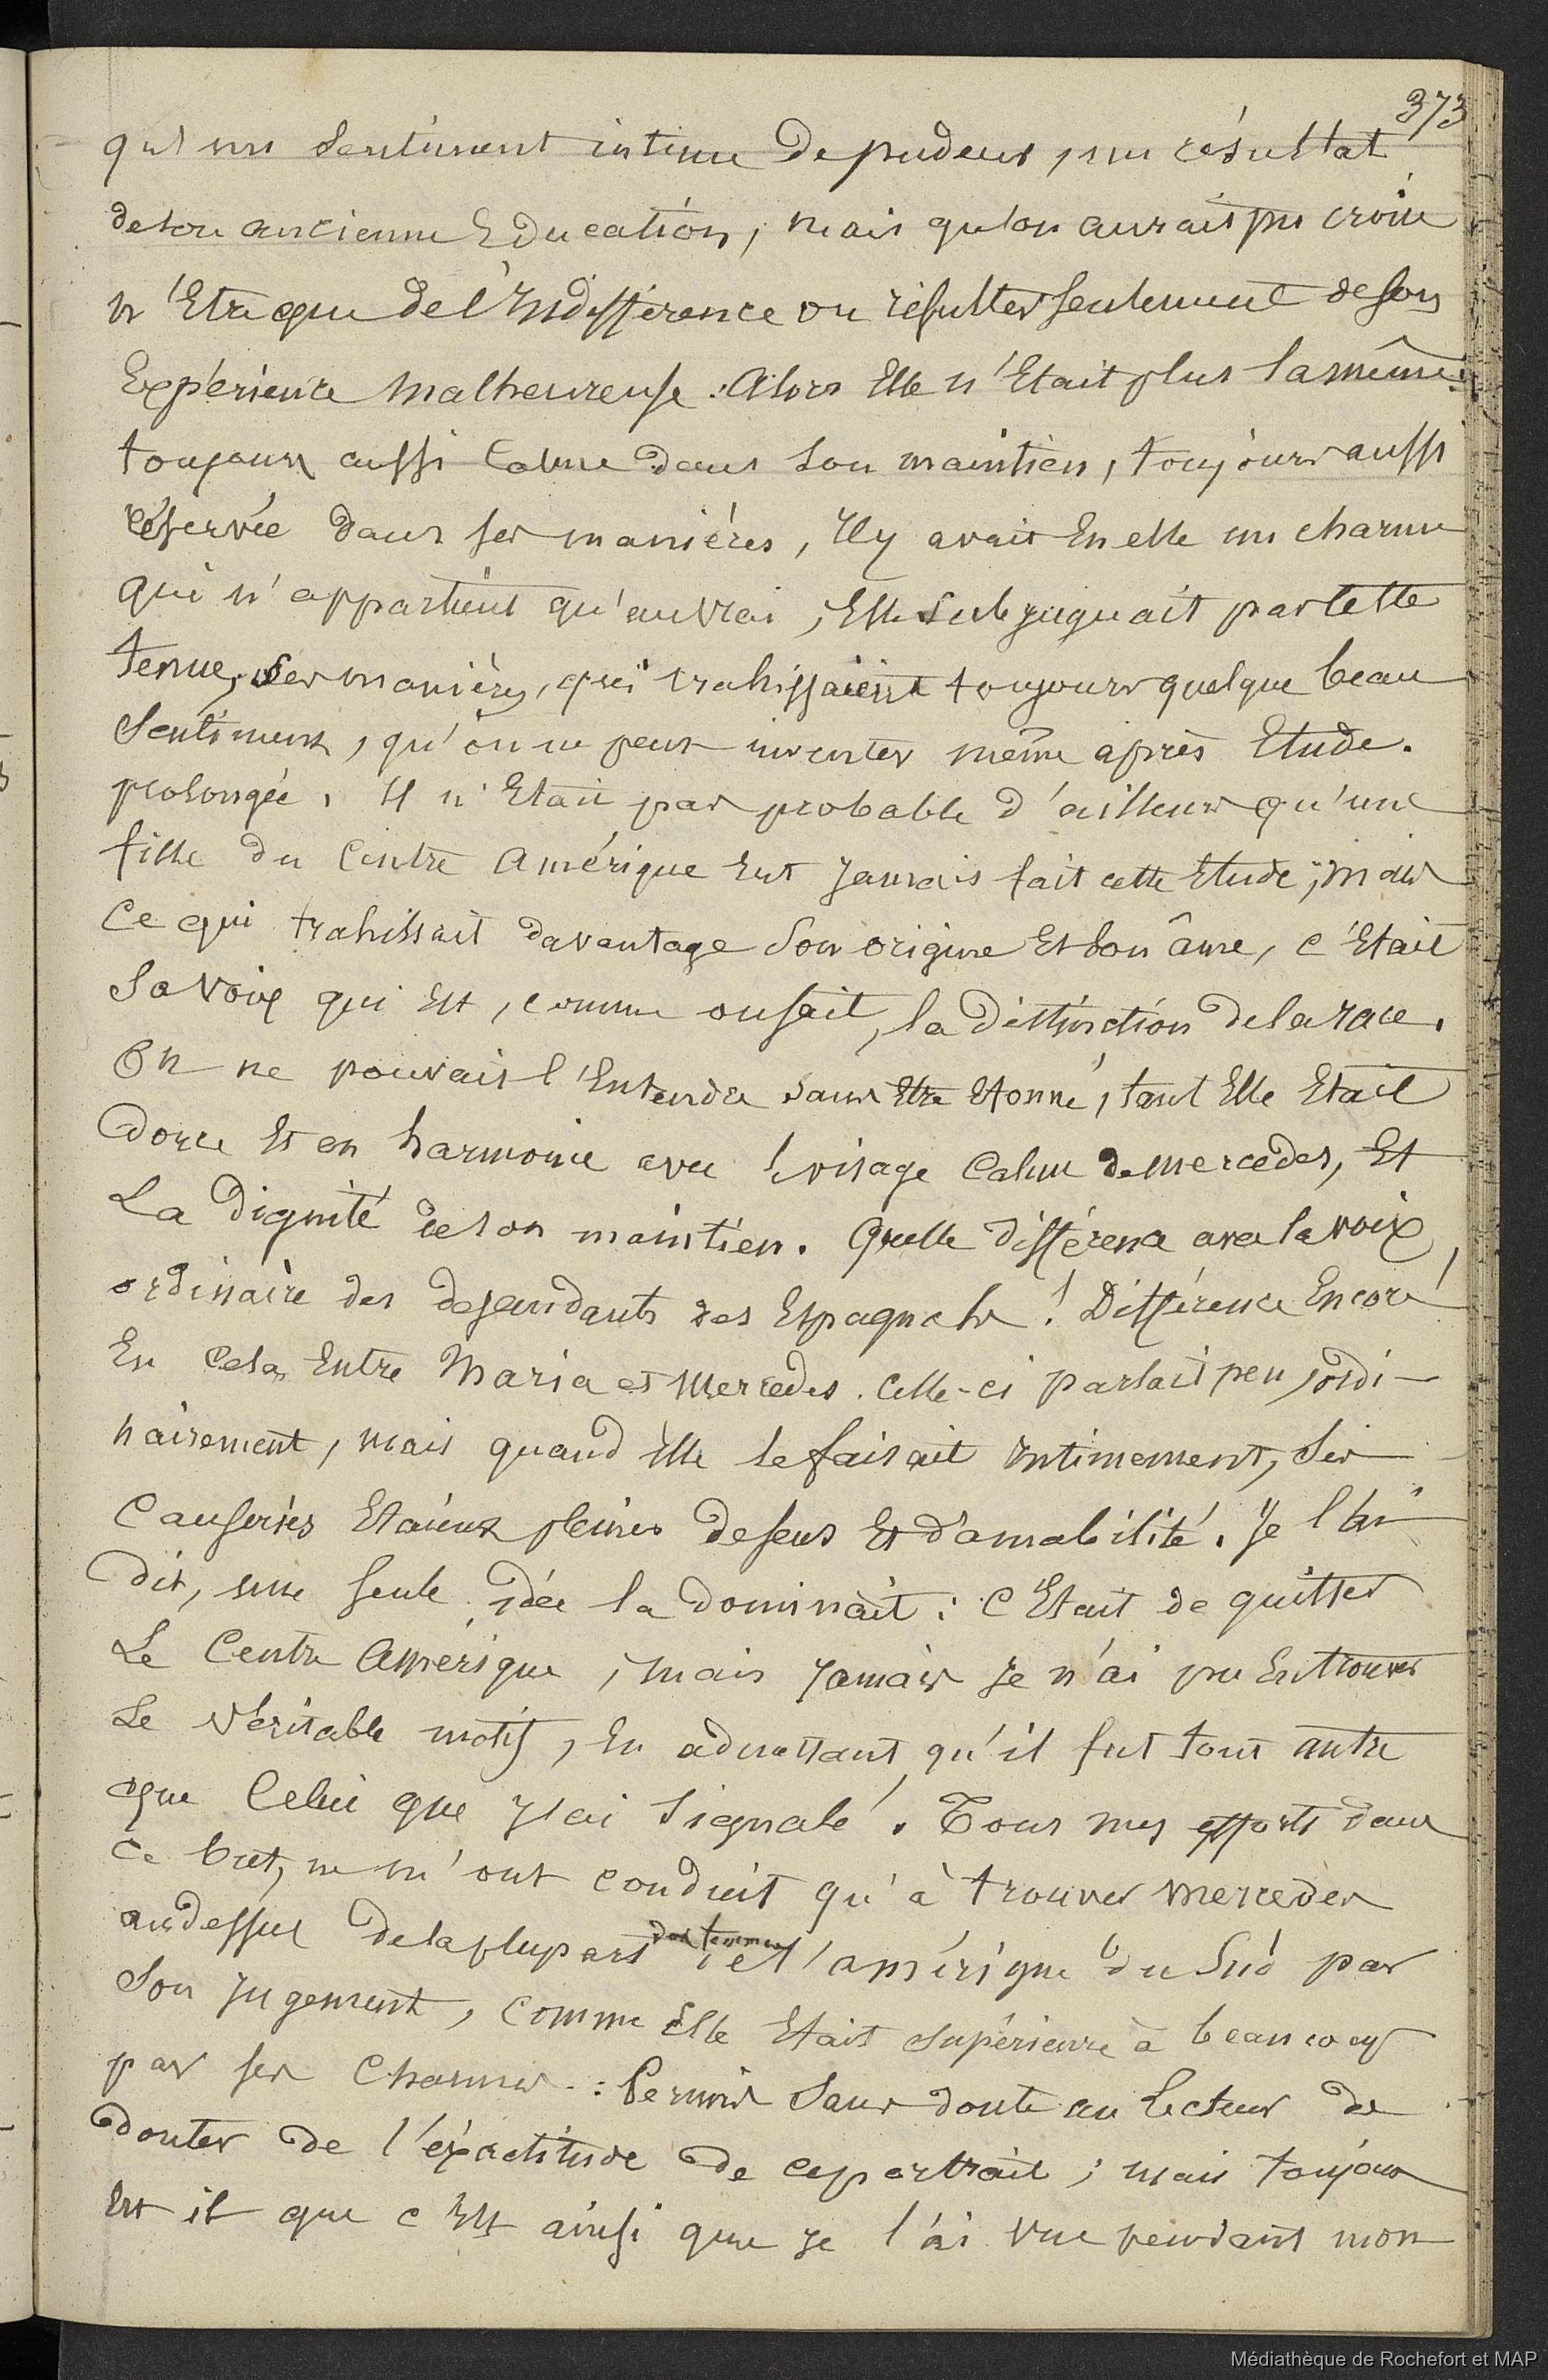 373
qu'un sentiment intime de pudeur, un résultat
de son ancienne Education, mais qu'on aurait pu croire
n'Etre que de l'Indifférence ou résulter seulement de son
Expérience malheureuse. Alors Elle n'Etait plus la même:
toujours aussi calme dans son maintien, toujours aussi
réservée dans ses manières, Il y avait En elle un charme
qui n'appartient qu'au vrai, Elle subjuguait par cette
tenue, ses manières, qui trahissaient toujours quelque beau
sentiment, qu'on ne peut inventer même après Etude.
prolongée. Il n'Etait pas probable d'ailleurs qu'une
fille du Centre Amérique Eut jamais fait cette Etude; mais
Ce qui trahissait davantage son origine Et son âme, c'Etait
Sa voix qui Est, comme on sait, la distinction de la race.
On ne pouvait l'Entendre sans Etre Etonné, tant Elle Etait
douce Et en harmonie avec le visage Calme de mercedes, Et
La Dignité de son maintien. Quelle différence avec la voix
ordinaire des descendants des Espagnols! Différence Encore
En Cela Entre Maria et Mercedes. Celle-ci parlait peu, ordi-
nairement, mais quand Elle le faisait intimement, Ses
Causeries Etaient pleines de sens Et d'amabilité. Je l'ai
dit, une seule idée la dominait: C'Etait de quitter
Le Centre Amérique, mais jamais je n'ai pu En trouver
Le véritable motif, En admettant qu'il fut tout autre
que Celui que j'ai signalé. Tous mes efforts dans
Ce but, ne m'ont conduit qu'à trouver Mercedes
au dessus de la plupart des femmes de l'amérique du Sud par
Son jugement, comme Elle Etait supérieure à beaucoup
par ses Charmes. Permis sans doute au lecteur de
douter de l'éxactitude de ce portrait; mais toujours
Est il que c'Est ainsi que je l'ai vue pendant mon
Médiathèque de Rochefort et MAP